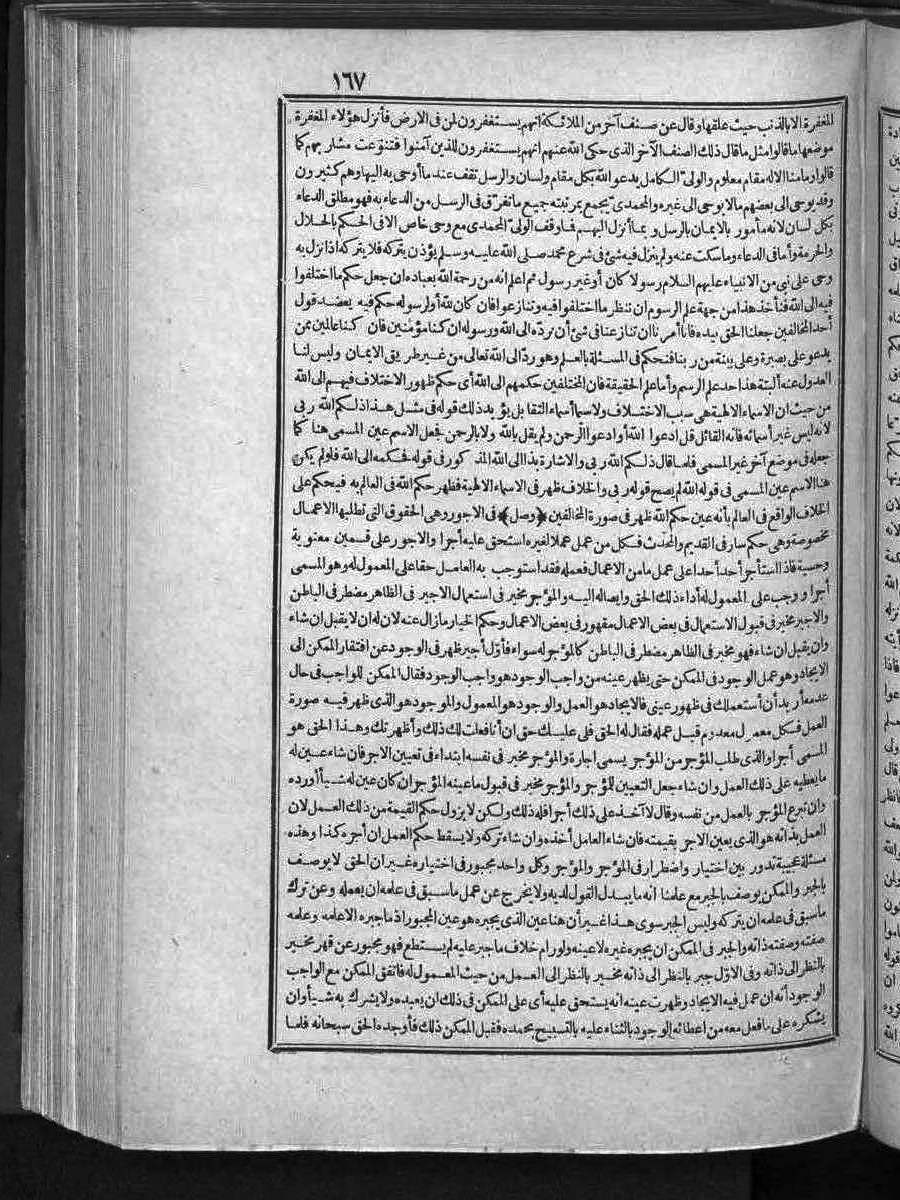 ١٦٧
المغفرة الا بالذنب حيث علقها وقال عن صنف آخر من الملائكة انهم يستغفرون لمن فى الارض فأنزل هؤلاء المغفرة
موضعها ما قالوا مثل ما قال ذلك الصنف الآخر الذى حكى الله عنهم انهم يستغفرون للذين آمنوا فتنوّعت مشاربهم كما
قالوا وما منا الا له مقام معلوم والولىّ الكامل يدعو الله بكل مقام ولسان والرسل تقف عند ما أوحى به اليها وهم كثيرون
وقد يوحى الى بعضهم ما لا يوحى الى غيره والمحمدىّ يجمع بمرتبته جميع ما تفرّق فى الرسل من الدعاء به فهو مطلق الدعاء
بكل لسان لانه مأمور بالايمان بالرسل وبما أنزل اليهم فما وقف الولىّ المحمدى مع وحى خاص الا فى الحكم بالحلال
والحرمة وأما فى الدعاء وما سكت عنه ولم ينزل فيه شئ فى شرع محمد صلى الله عليه وسلم يؤذن بتركه فلا يتركه اذا نزل به
وحى على نبى من الانبياء عليهم السلام رسولا كان أو غير رسول ثم اعلم انه من رحمة الله بعباده ان جعل حكم ما اختلفوا
فيه الى الله فنأخذ هذا من جهة علم الرسوم ان ننظر ما اختلفوا فيه وتنازعوا فان كان لله أو لرسوله حكم فيه يعضد قول
أحد المخالفين جعلنا الحق بيده فانا أمرنا ان تنازعنا فى شئ أن نردّه الى الله ورسوله ان كنا مؤمنين فان كنا عالمين ممن
يدعو على بصيرة وعلى بينة من ربنا فنحكم فى المسئلة بالعلم وهو ردّ الى الله تعالى من غير طريق الايمان وليس لنا
العدول عنه ألبتة هذا حد علم الرسم وأما علم الحقيقة فان المختلفين حكمهم الى الله أى حكم ظهور الاختلاف فيهم الى الله
من حيث ان الاسماء الالهية هى سبب الاختلاف ولا سيما أسماء التقابل يؤيد ذلك قوله فى مثل هذا ذلكم الله ربى
لانه ليس غير أسمائه فانه القائل قل ادعوا الله أو ادعوا الرحمن ولم يقل بالله ولا بالرحمن فجعل الاسم عين المسمى هنا كما
جعله فى موضع آخر غير المسمى فلما قال ذلكم الله ربى والاشارة بذا الى الله المذكور فى قوله فحكمه الى الله فلو لم يكن
هنا الاسم عين المسمى فى قوله الله لم يصح قوله ربى والخلاف ظهر فى الاسماء الالهية فظهر حكم الله فى العالم به فيحكم على
الخلاف الواقع فى العالم بأنه عين حكم الله ظهر فى صورة المخالفين ﴿وصل﴾ فى الاجور وهى الحقوق التى تطلبها الاعمال
مخصوصة وهى حكم سار فى القديم والمحدث فكل من عمل عملا لغيره استحق عليه أجرا والاجور على قسمين معنوية
وحسية فاذا استأجر أحد أحدا على عمل ما من الاعمال فعمله فقد استوجب به العامل حقا على المعمول له وهو المسمى
أجرا ووجب على المعمول له أداء ذلك الحق وايصاله اليه والمؤجر مخير فى استعمال الاجير فى الظاهر مضطر فى الباطن
والاجير مخير فى قبول الاستعمال فى بعض الاعمال مقهور فى بعض الاعمال وحكم الخيار ما زال عنه لان له ان لا يقبل ان شاء
وان يقبل ان شاء فهو مخير فى الظاهر مضطر فى الباطن كالمؤجر له سواء فأوّل أجير ظهر فى الوجود عن افتقار الممكن الى
الايجاد وهو عمل الوجود فى الممكن حتى يظهر عينه من واجب الوجود هو واجب الوجود فقال الممكن للواجب فى حال
عدمه أريد أن أستعملك فى ظهور عينى فالايجاد هو العمل والوجود هو المعمول والموجود هو الذى ظهر فيه صورة
العمل فكل معمول معدوم قبل عمله فقال له الحق فلى عليك حق ان أنا فعلت لك ذلك وأظهرتك وهذا الحق هو
المسمى أجرا والذى طلب المؤجر من المؤجر يسمى اجارة والمؤجر مخير فى نفسه ابتداء فى تعيين الاجر فان شاء عين له
ما يعطيه على ذلك العمل وان شاء جعل التعيين للمؤجر والمؤجر مخير فى قبول ما عينه المؤجر ان كان عين له شيأ أو رده
وان تبرع المؤجر بالعمل من نفسه وقال لا آخذ على ذلك أجرا فله ذلك ولكن لا يزول حكم القيمة من ذلك العمل لان
العمل بذاته هو الذى يعين الاجر بقيمته فان شاء العامل أخذه وان شاء تركه ولا يسقط حكم العمل ان أجره كذا وهذه
مسئلة عجيبة تدور بين اختيار واضطرار فى المؤجر والمؤجر وكل واحد مجبور فى اختياره غير ان الحق لا يوصف
بالجبر والممكن يوصف بالجبر مع علمنا انه ما يبدل القول لديه ولا يخرج عن عمل ما سبق فى علمه ان يعمله وعن ترك
ما سبق فى علمه ان يتركه وليس الجبر سوى هذا غير أن هنا عين الذى يجبره هو عين المجبور اذ ما جبره الا علمه وعلمه
صفته وصفته ذاته والجبر فى الممكن ان يجبره غيره لا عينه ولو رام خلاف ما جبر عليه لم يستطع فهو مجبور عن قهر مخير
بالنظر الى ذاته وفى الاوّل جبر بالنظر الى ذاته مخير بالنظر الى العمل من حيث المعمول له فاتفق الممكن مع الواجب
الوجود أنه ان عمل فيه الايجاد وظهرت عينه انه يستحق عليه أى على الممكن فى ذلك ان يعبده ولا يشرك به شيأ وان
يشكره على ما فعل معه من اعطائه الوجود بالثناء عليه بالتسبيح بحمده فقبل الممكن ذلك فأوجده الحق سبحانه فلما